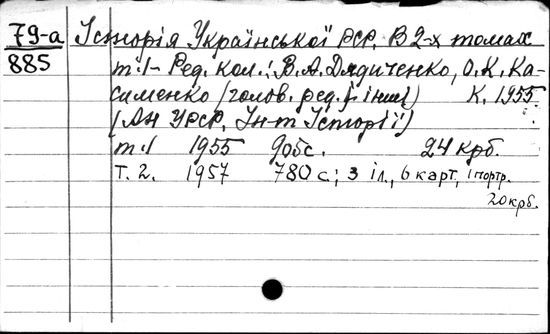 79-а Історія Української РСР. В 2-х томах
885 т. 1- Ред. кол.: В. А. Дядиченко, О. К. Ка-
сименко (голов. ред.) і інші) К. 1955.
(АН УРСР. Ін-т Історії)
т. 1 1955 905с. 24 крб.
Т. 2. 1957 780 с; 3 іл., 6 карт, 1 портр.
20 крб.